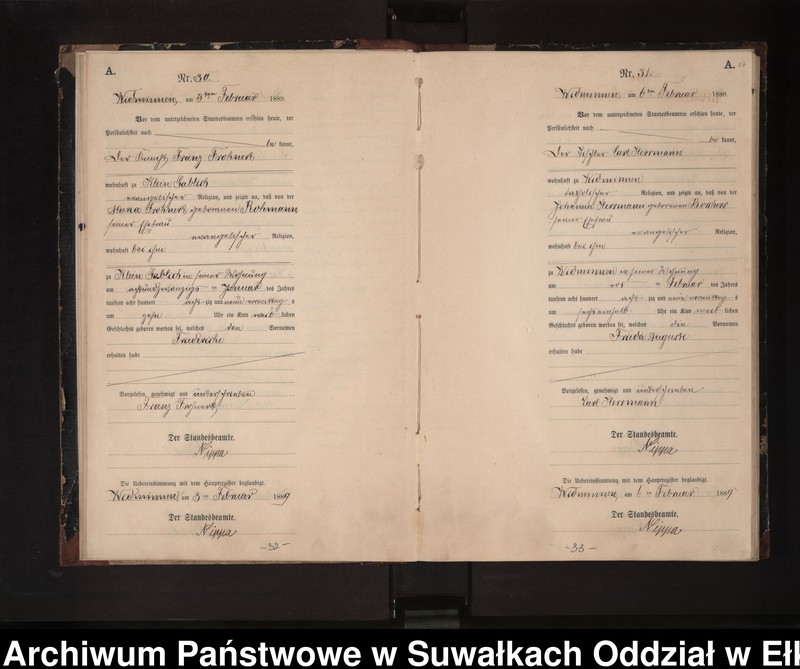 A.
Nr. 30.
Widminnen, am 3ten Februar 1889.
Vor dem unterzeichneten Standesbeamten erschien heute, der
Persönlichkeit nach
be kannt,
der Knecht Franz
wohnhaft zu Klein Gablick
evangelischer Religion, und zeigte an, daß von der
geborenen
seiner Ehefrau
evangelischer Religion,
wohnhaft bei ihm
zu Klein Gablick in seiner Wohnung
am achtundzwanzigsten Januar des Jahres
tausend acht hundert acht zig und neun vormittags
um zehn Uhr ein Kind weib lichen
Geschlechts geboren worden sei, welches den Vornamen
Friederike
erhalten habe
Vorgelesen, genehmigt und unterschrieben
Franz
Der Standesbeamte.
Nippa
Die Uebereinstimmung mit dem Hauptregister beglaubigt.
Widminnen, am 3ten Februar 1889
Der Standesbeamte.
Nippa
-32-
A.
Nr. 31.
Widminnen, am 6ten Februar 1889.
Vor dem unterzeichneten Standesbeamten erschien heute, der
Persönlichkeit nach
be kannt,
der Tischler Carl Herrmann
wohnhaft zu Widminnen
Religion, und zeigte an, daß von der
Johanna Herrmann geborenen
seiner Ehefrau
evangelischer Religion,
wohnhaft bei ihm
zu Widminnen in seiner Wohnung
am ersten Februar des Jahres
tausend acht hundert acht zig und neun vormittags
um Uhr ein Kind weib lichen
Geschlechts geboren worden sei, welches die Vornamen
Frieda Auguste
erhalten habe
Vorgelesen, genehmigt und unterschrieben
Carl Herrmann
Der Standesbeamte.
Nippa
Die Uebereinstimmung mit dem Hauptregister beglaubigt.
Widminnen, am 6ten Februar 1889
Der Standesbeamte.
Nippa
-33-
Archiwum Państwowe w Suwałkach Oddział w Eł